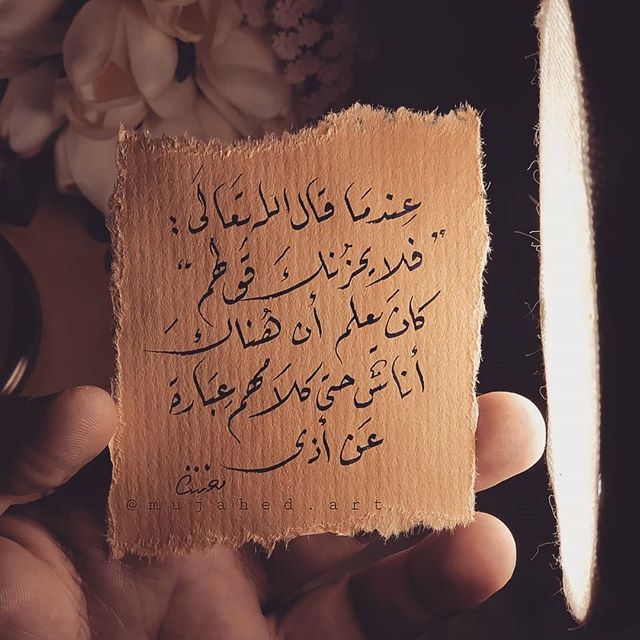 عِندمَا قال الله تعَالَى :
"فلا يحزُنكَ قَولهم"
كانَ يَعلم أن هُناكَ
أناسٌ حتى كلامُهم عِبَارة
عَن أذى
@mujahed.art